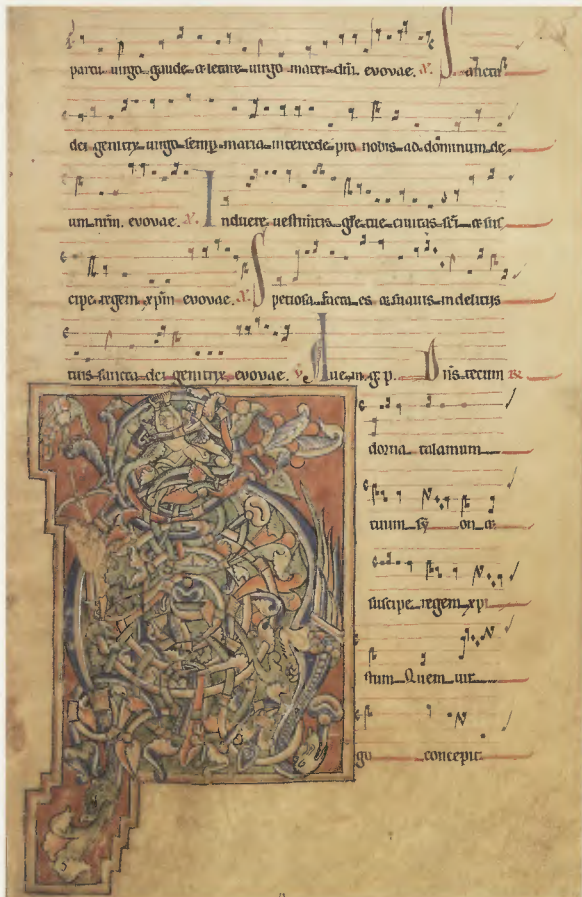 partu uirgo gaude & letare uirgo mater dñi. evovae. a. Sanctis
dei genitrix uirgo semp maria intercede pro nobis ad dominum de
um nrm. evovae. a. Induere uestimtis gle tue ciuitas sci & sus
cipe regem xpm evovae. a. Speciosa facta es & suauis in delitiis
tuis sancta dei genitrix evovae. v Aue m. g. p. Dns tecum R
dorna talamum
tuum sy on &
suscipe regem xpi
stum Quem uir
go concepit